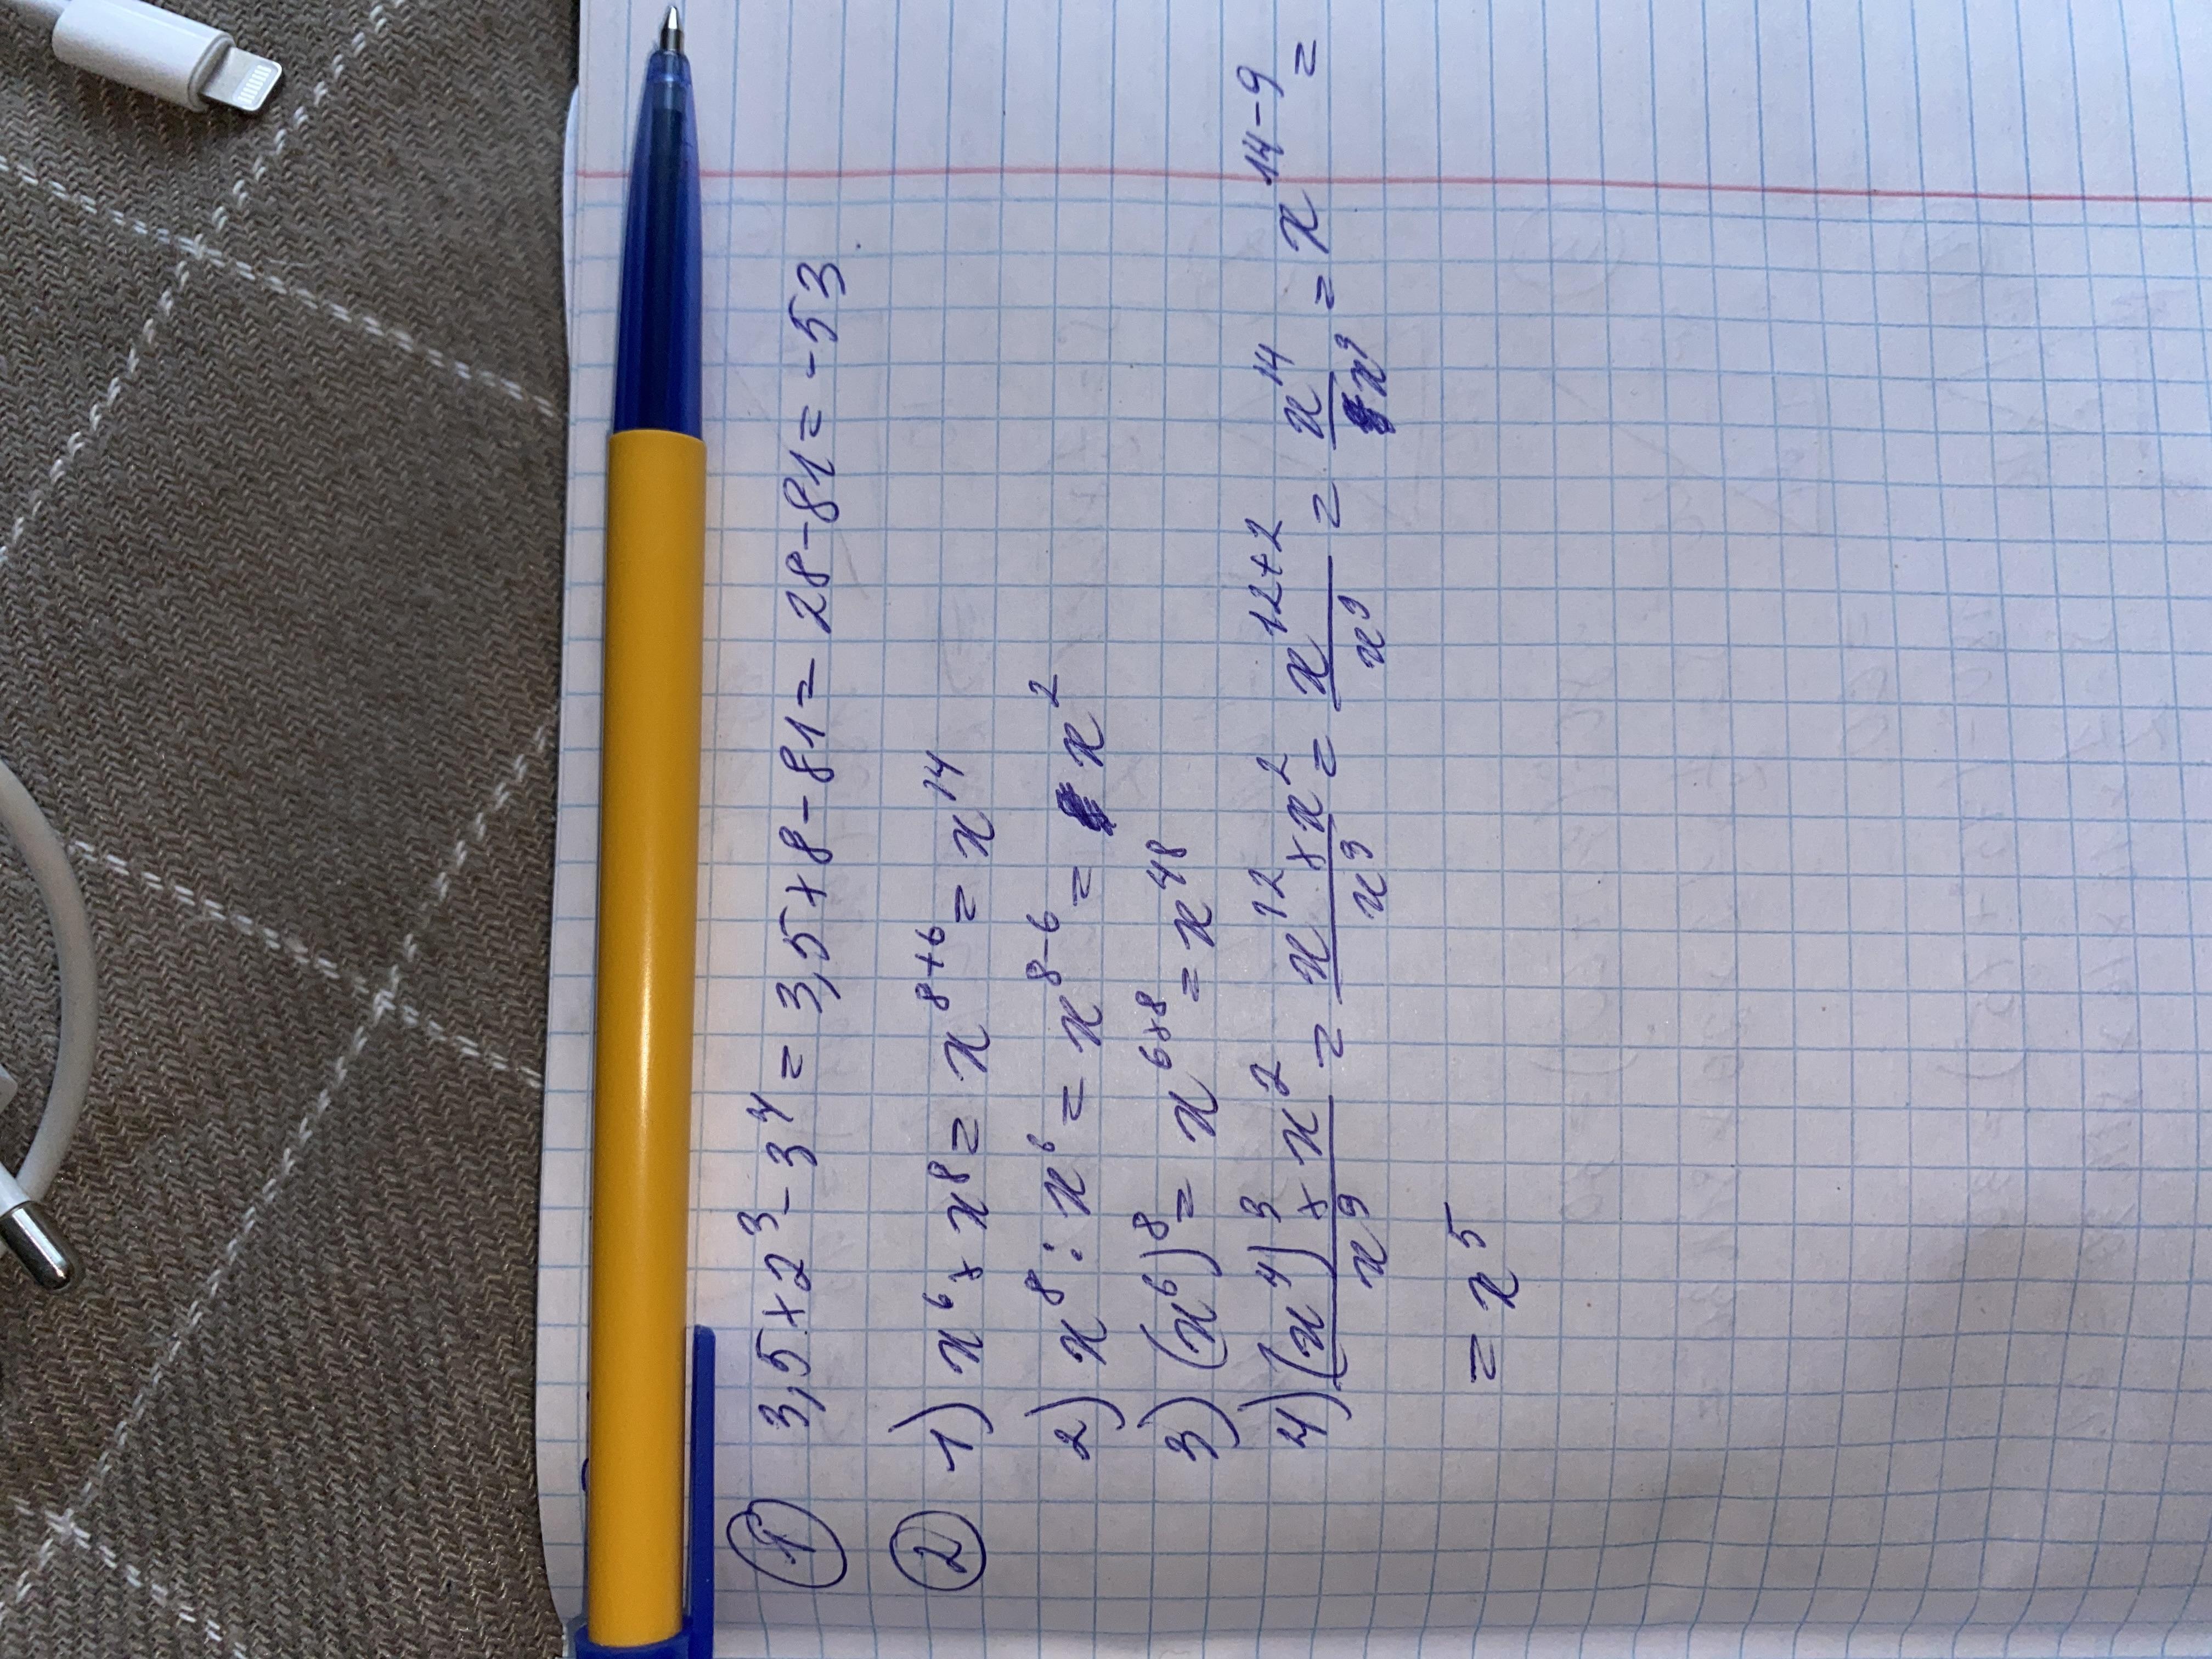 ① 3,5×2³-3⁴=3,5×8-81=28-81=-53
② 1) x⁶×x⁸=x⁸⁺⁶=x¹⁴
2) x⁸:x⁶=x⁸⁻⁶=x²
3) (x⁶)⁸=x⁶ˣ⁸=x⁴⁸
4) (x⁴)³×x²/x⁹=x¹²×x²/x⁹=x¹²⁺²/x⁹=x¹⁴/x⁹=x¹⁴⁻⁹=
=x⁵